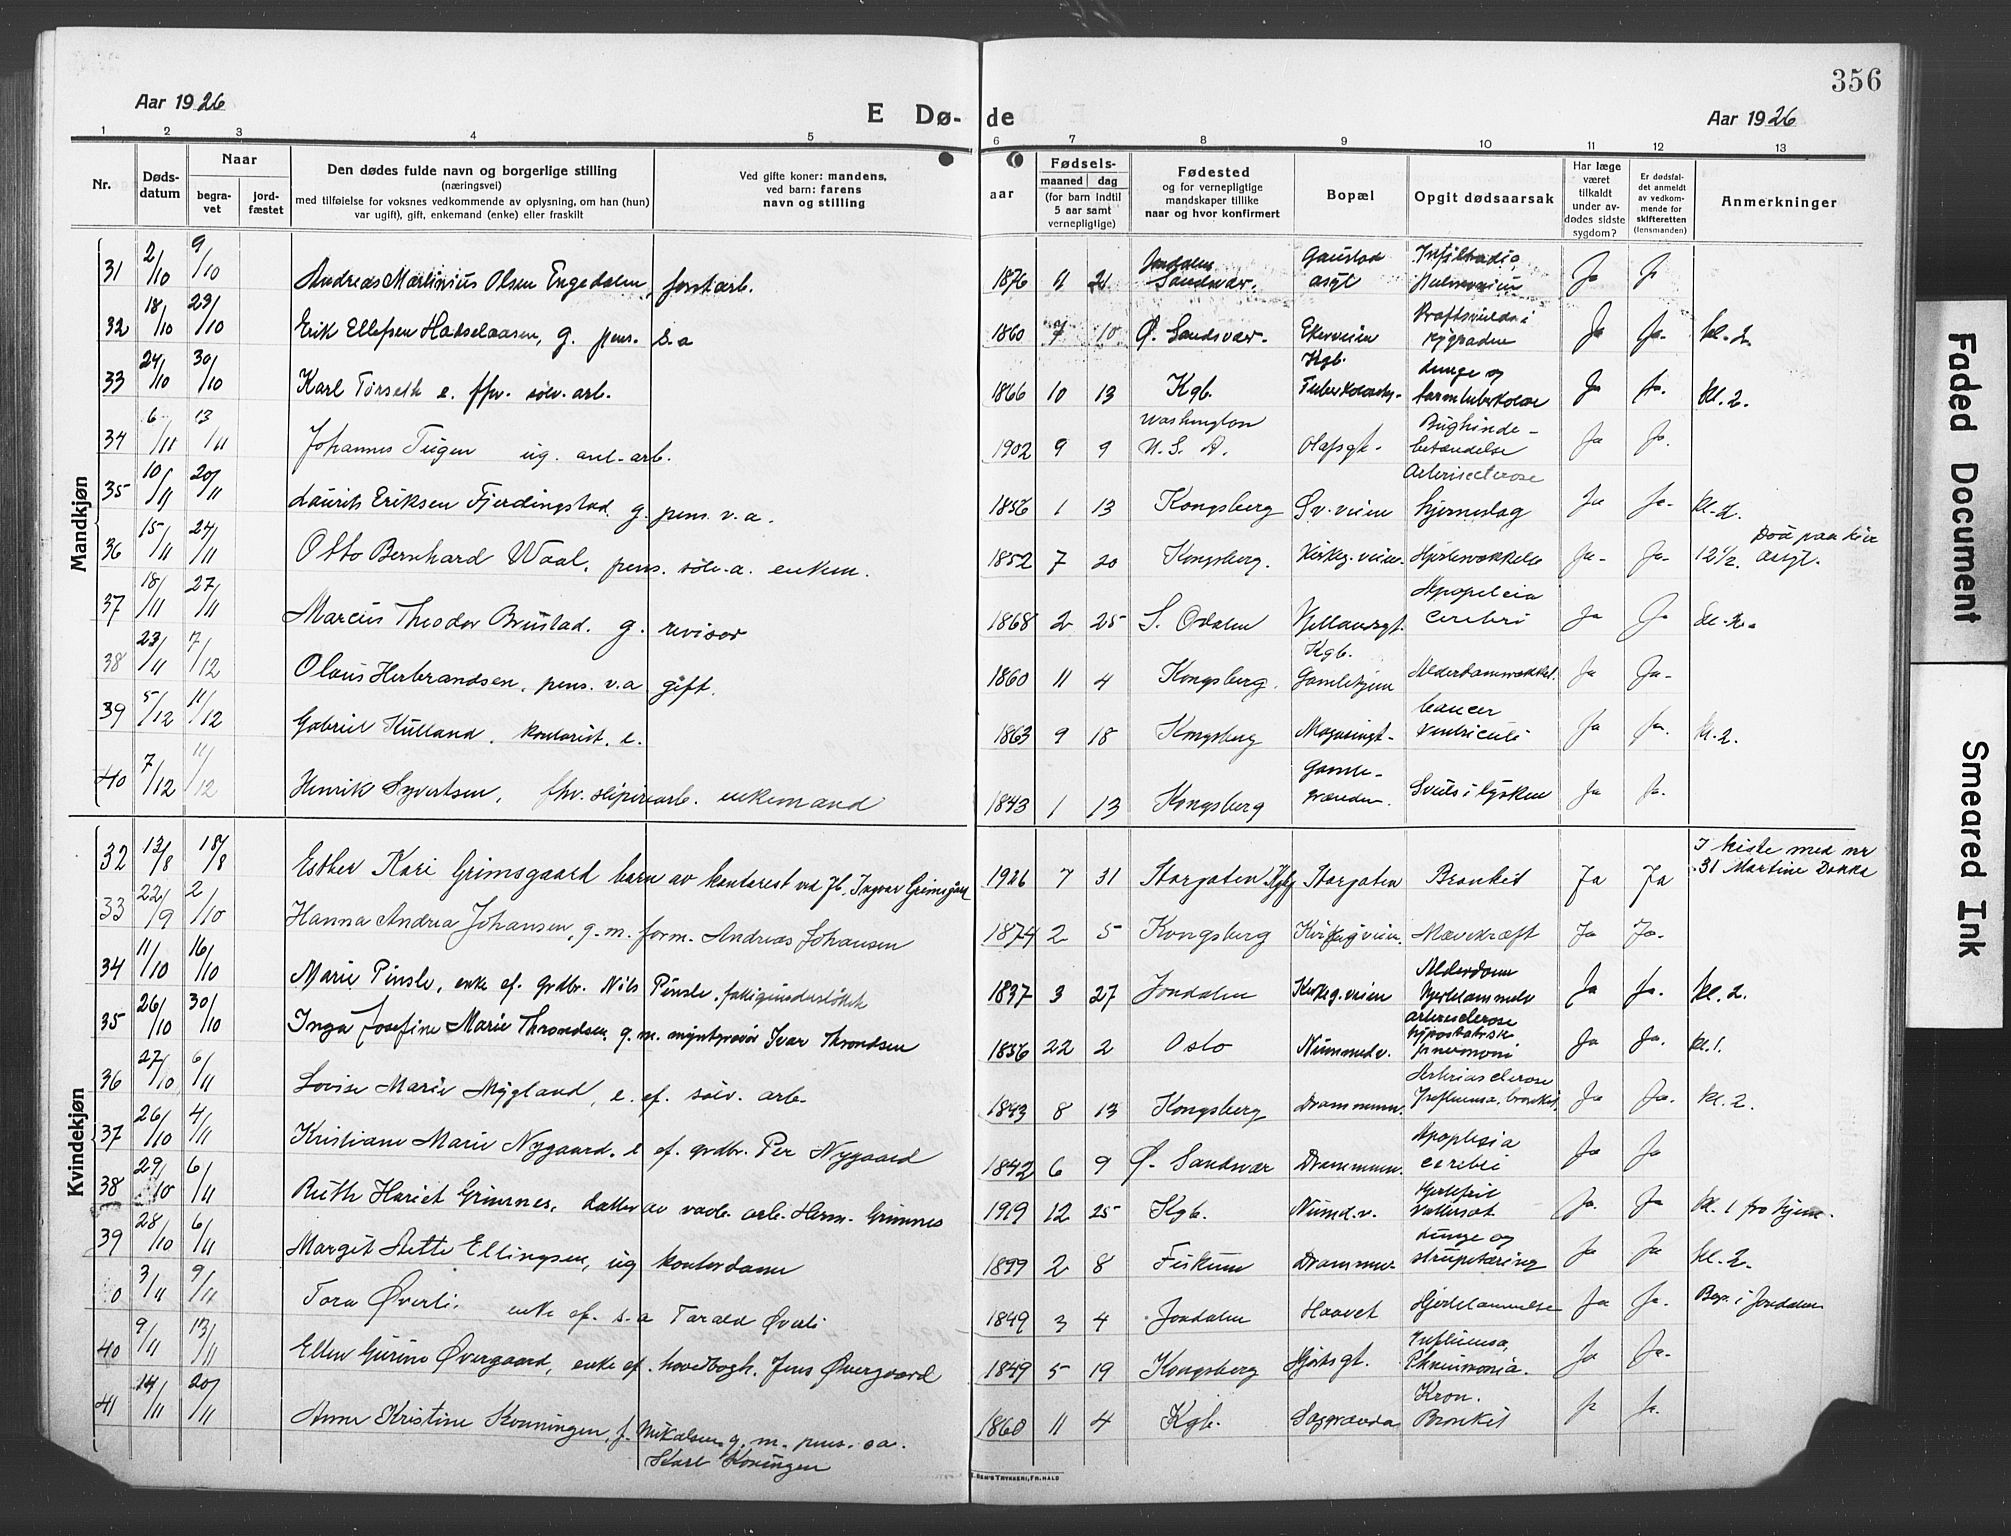 356
Aar 1926
E Dø-
de
Aar 1926
1 2 3 4 5 6 7 8 9 10 11 12 13
Nr.
Døds-
datum
Naar
begra-
vet
jord-
fæstet
Den dødes fulde navn og borgerlige stilling
(næringsvei)
med tilføielse for voksnes vedkommende av oplysning, om han (hun)
var ugift), gift, enkemand (enke) eller fraskilt
Ved gifte koner: mandens,
ved barn: farens
navn og stilling
aar
Fødsels-
maaned dag
(for barn indtil
5 aar samt
vernepligtige)
Fødested
og for vernepligtige
mandskaper tillike
naar og hvor konfirmert
Bopæl
Opgit dødsaarsak
Har læge
været
tilkaldt
under av-
dødes sidste
sygdom?
Er dødsfal-
det anmeldt
av vedkom-
mende for
skifteretten
(lensmanden)
Anmerkninger
Mandkjøn
31 2/10 9/10 Andreas Martinius Olsen Engedalen, forstarb. 1876 Jondalen Sandsvær. Gaustad asyl Ja
32 18/10 23/10 Erik Ellefsen Hadselaasen, g. pens. s.a 1860 7 10 Ø. Sandsvær. Ekerveien rygraden Ja Ja. kl. 2.
33 24/10 30/10 Karl Torseth e. fhv. sølv. arb. 1866 10 13 Kgb. Kgb. Lunge og tarmtuberkolose Ja Ja. kl. 2.
34 6/11 13/11 Johannes Tugen ug. anl. arb. 1902 9 9 Washington U. S. A. Olafsgt. Bughinde-betændelse Ja Ja.
35 10/11 20/11 Laurits Eriksen Fjerdingstad g. pens. v.a. 1856 1 13 Kongsberg Sv. veien Arteriosclerose hjerneslag Ja Ja. kl. 2.
36 15/11 24/11 Otto Bernhard Waal, pens. sølv. a. enkem. 1852 7 20 Kongsberg. Kirkeg. veien Hjertesvækkelse Ja. Ja. 12 1/2. Død paa
37 18/11 27/11 Marcus Theodor Brustad. g. revisor 1868 2 25 S. Odalen Hyttegt. Kgb. Apoplexia cerebri Ja Ja kl. 2.
38 23/11 7/12 Olaus Herbrandsen, pens. v.a gift. 1860 11 4 Kongsberg. Gamlehjem Alderdomssvækkel. Ja Ja.
39 5/12 11/12 Gabriel Hulland, kontorist, e. 1863 9 18 Kongsberg Magasingt. Cancer Ventriculi Ja Ja. kl. 2.
40 7/12 11/12 Henrik Syvertsen, fhv. sliperiarb. enkemand 1843 1 13 Kongsberg Gamle-grænden. Svuls i lysken Ja Ja.
Kvindekjøn
32 13/8 18/8 Esther Kari Grimsgaard barn av kontorist ved Jb. Ingvar Grimsgaard 1926 7 31 Storgaten Kgbg Storgaten Bronkit Ja Ja I kiste med nr 31 Martine Dokka
33 22/9 2/10 Hanna Andrea Johansen, g. m. form. Andreas Johansen 1874 2 5 Kongsberg Kirkegveien. Mavekræft Ja Ja.
34 11/10 16/10 Marie Pinsle, enke ef. grdbr. Nils Pinsle, fattigunderstøttet 1837 3 27 Jondalen Kirkeg. veien Alderdom Hjertelammelse Ja Ja. kl. 2.
35 26/10 30/10 Inga Josefine Marie Throndsen, g. m. myntgravør Ivar Throndsen 1856 22 2 Oslo Nummedv. arteriosclerose hypostatisk pneumoni Ja Ja. kl. 1.
36 27/10 6/11 Lovise Marie Mygland, e. ef. sølv. arb. 1843 8 13 Kongsberg Drammensv. Arteriosclerose Influensa, bronkit, Ja Ja. kl. 2.
37 26/10 4/11 Kristiane Marie Nygaard, e ef. grdbr. Per Nygaard 1842 6 9 Ø. Sandsvær Drammensv. Apoplexia cerebri Ja Ja
38 29/10 6/11 Ruth Hariet Grimnes, datter av vaab. arb. Herm. Grimnes 1919 12 25 Kgb. Numd.v. Hjertefeil Vattersot Ja. Ja kl. 1 fra hjem.
39 28/10 6/11 Margit Mette Ellingsen, ug kontordame 1899 2 8 Fiskum Drammsv. Lunge og strupetæring Ja Ja kl. 2.
0 3/11 9/11 Tora Øverli. enke ef. s.a Tarald Øverli 1849 3 4 Jondalen Haavet Hjertelammelse Ja Ja. Begr. i Jondalen
40 9/11 13/11 Ellen Gurine Øvergaard, enke ef. hovedbogh. Jens Øvergaard 1849 5 19 Kongsberg Hjortsgt. Influensa, Pkneumonia. Ja Ja.
41 14/11 20/11 Anne Kristine Konningen, f. Mikalsen g. m. pens. sa. Karl Koningen 1860 11 4 Kgb. Saggrænda Kron. Bronkit Ja Ja.
TRYKKERI, FR.HALD
Faded Document
Smeared Ink